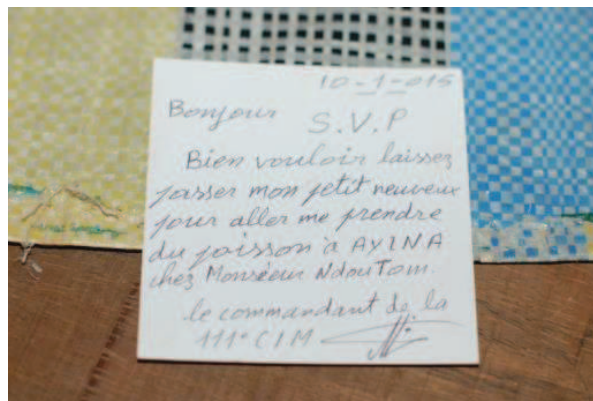 10-1-015
Bonjour
S.V.P
Bien vouloir laissez
passer mon petit neuveux
pour aller me prendre
du poisson à AYINA
chez Monsieur Ndou Tom.
le commandant de la
111e CIM